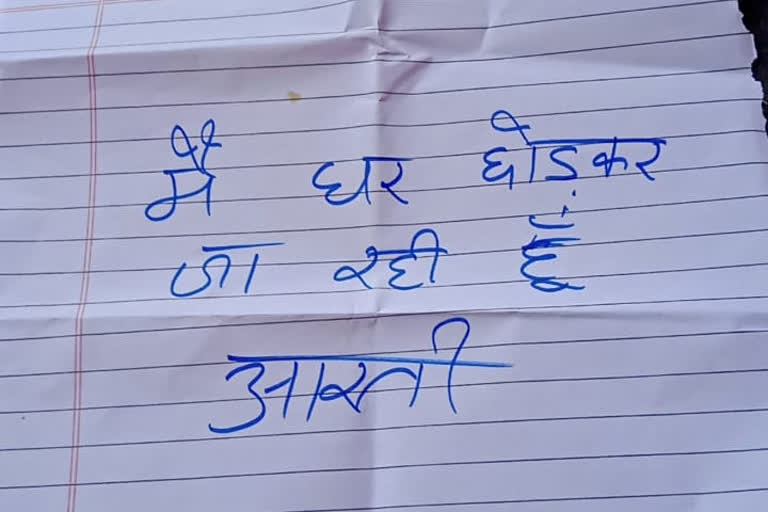 मैं घर छोड़कर
जा रही हूँ
आरती